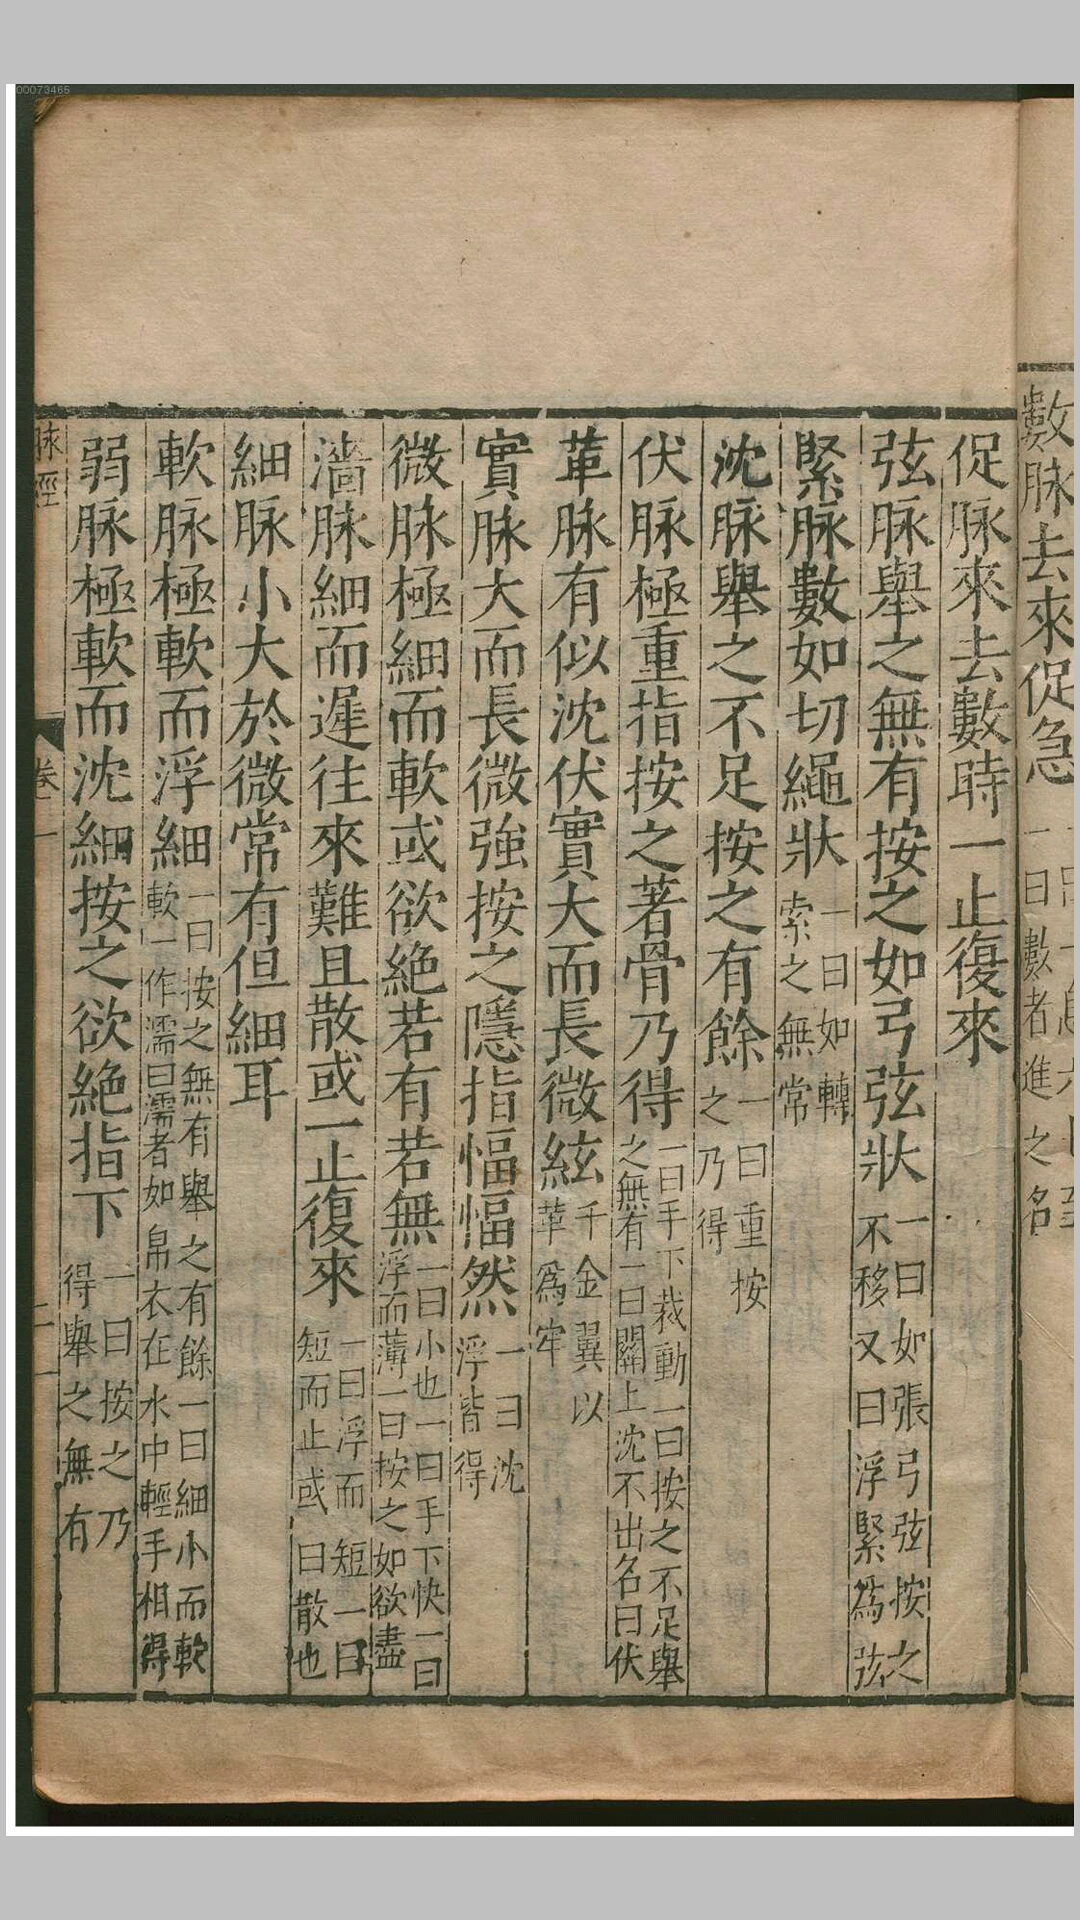 00073465
數脉去來促急
一曰數者進之名
促脉來去數時一止復來
弦脉舉之無有按之如弓弦狀
一曰如張弓弦按之
不移又曰浮緊爲弦
緊脉數如切繩狀
一曰如轉
索之無常
沈脉舉之不足按之有餘
一曰重按
之乃得
伏脉極重指按之著骨乃得
一曰手下裁動一曰按之不足舉
之無有一曰關上沈不出名曰伏
革脉有似沈伏實大而長微絃
千金翼以
革爲牢
實脉大而長微強按之隱指愊愊然
一曰沈
浮皆得
微脉極細而軟或欲絶若有若無
一曰小也一曰手下快一曰
浮而薄一曰按之如欲盡
濇脉細而遲往來難且散或一止復來
一曰浮而短一曰
短而止或曰散也
細脉小大於微常有但細耳
軟脉極軟而浮細
一曰按之無有舉之有餘一曰細小而軟
軟一作濡曰濡者如帛衣在水中輕手相得
弱脉極軟而沈細按之欲絶指下
一曰按之乃
得舉之無有
脉經
卷一
二